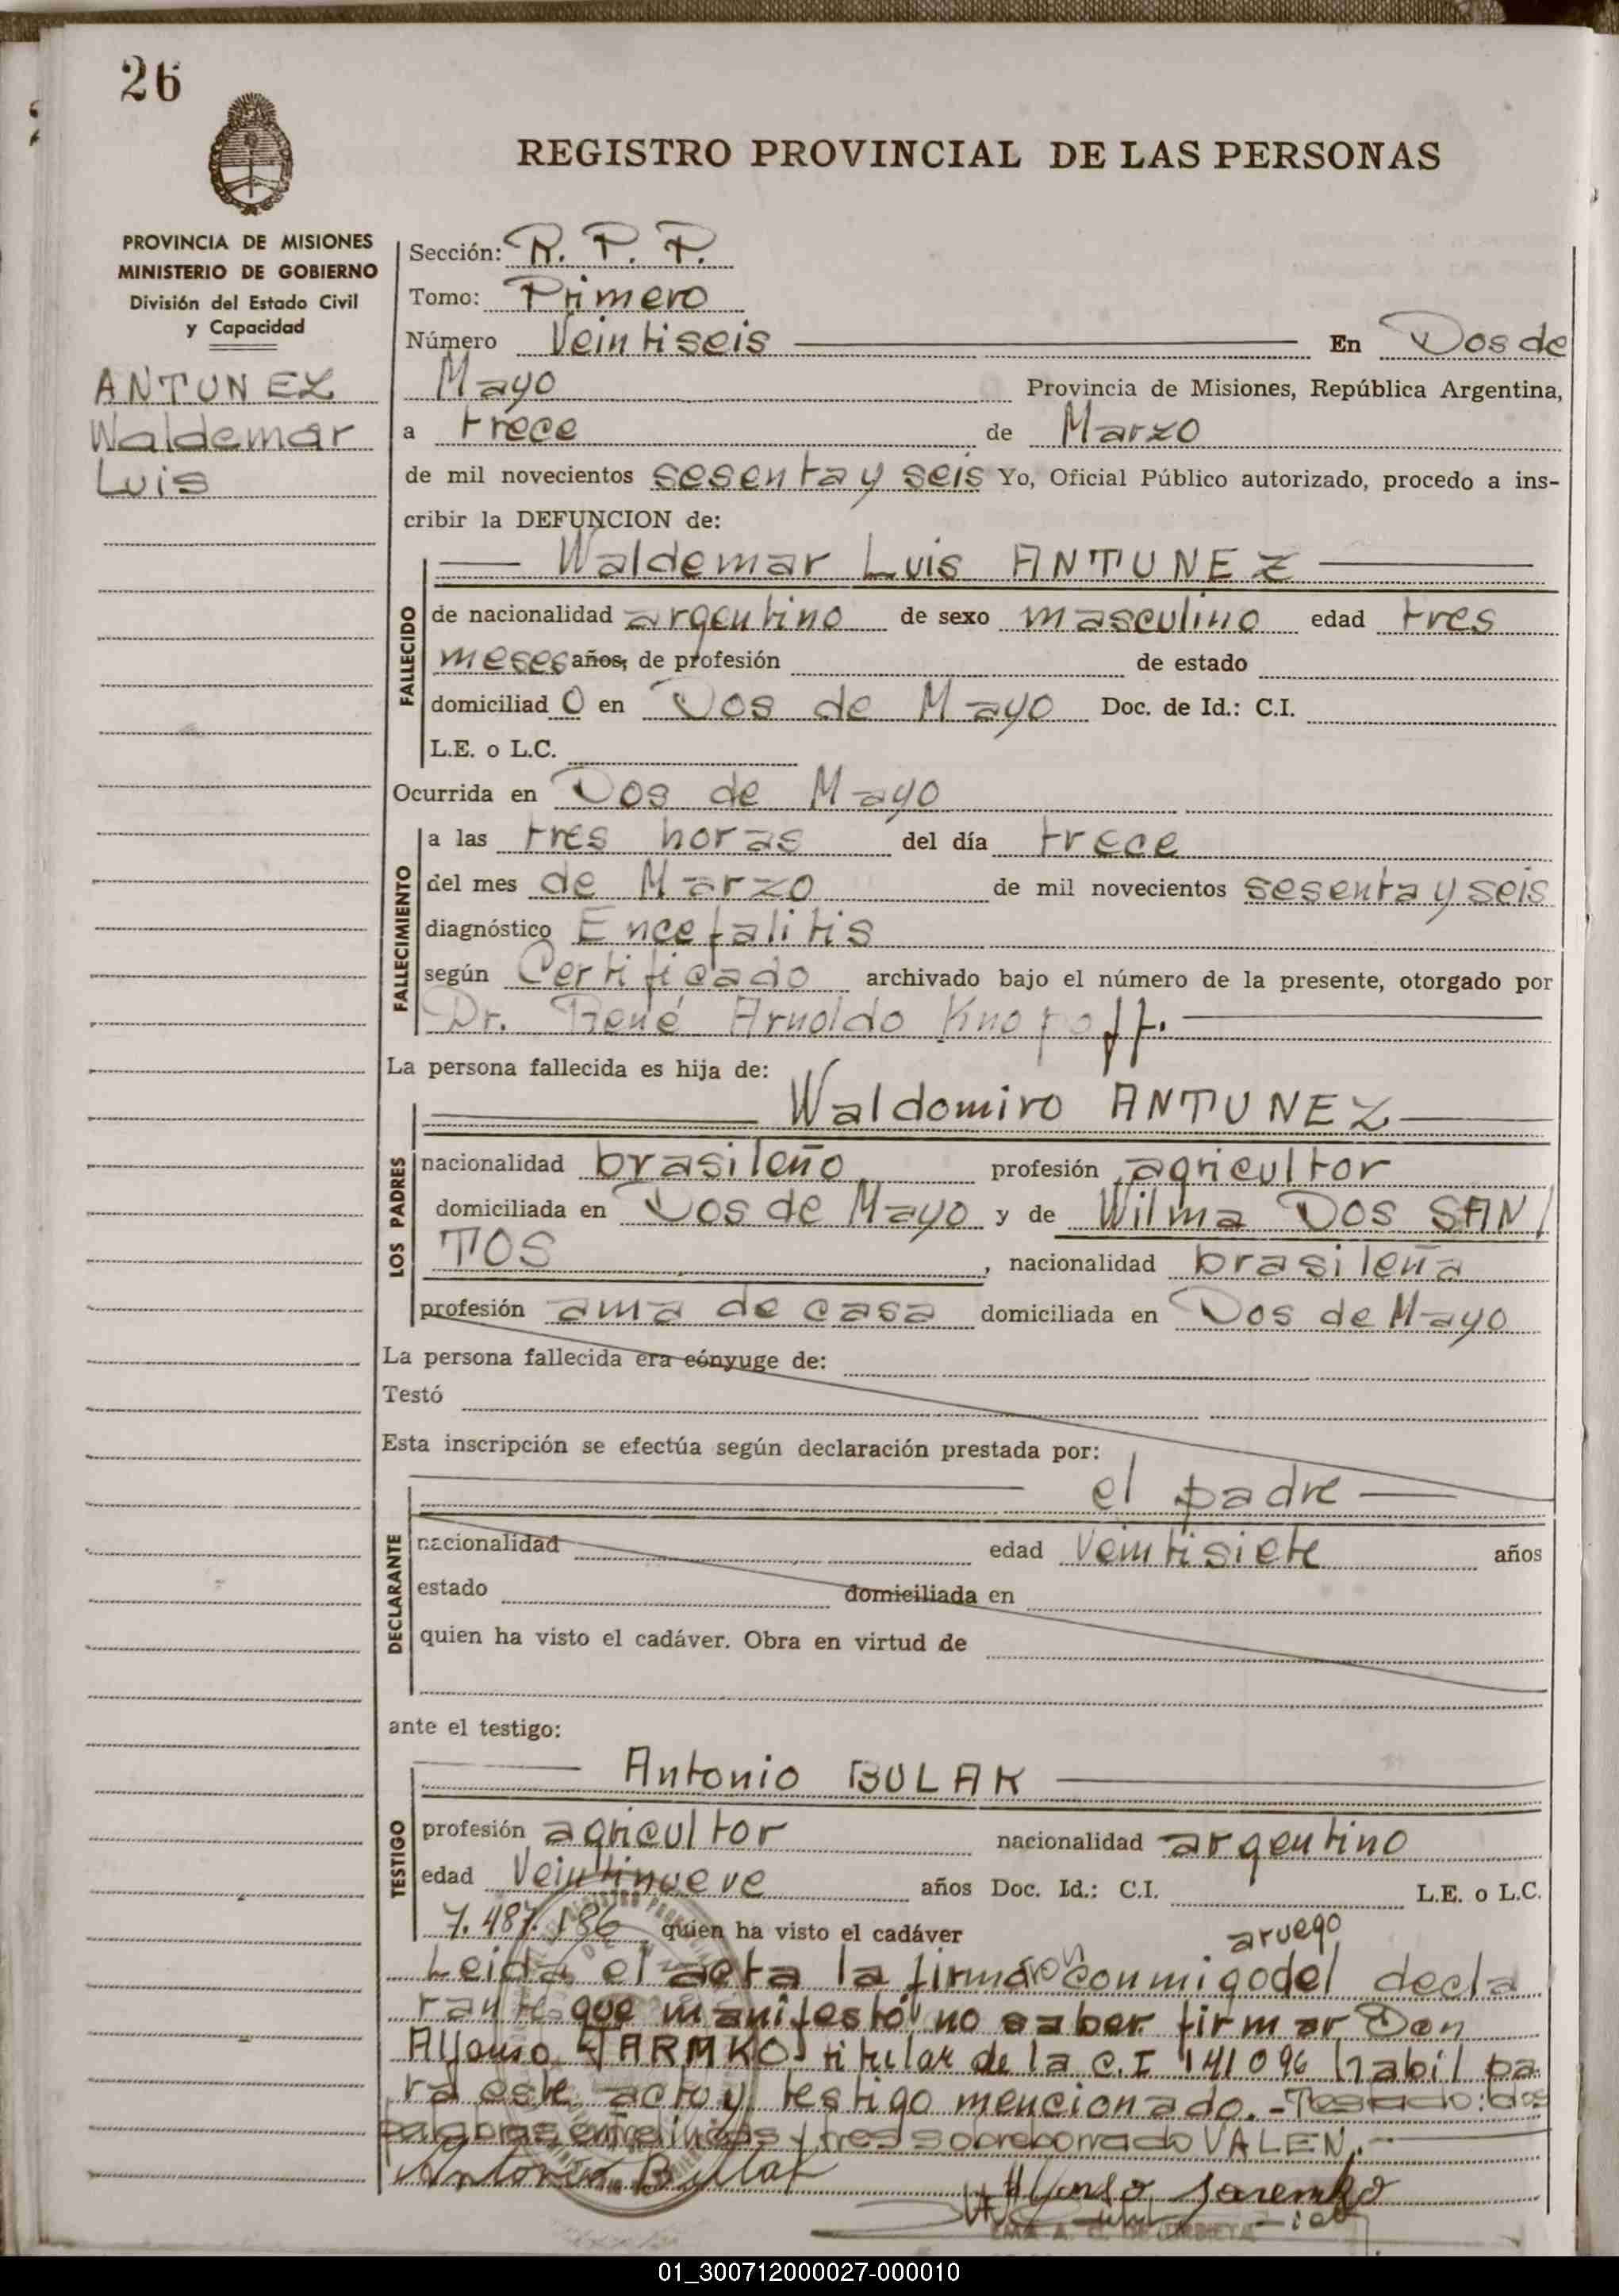 26
REGISTRO PROVINCIAL DE LAS PERSONAS
PROVINCIA DE MISIONES
MINISTERIO DE GOBIERNO
División del Estado Civil
y Capacidad
ANTUNEZ
Waldemar
Luis
Sección: R. P. P.
Tomo: Primero
Número Veintiseis En Dos de
Mayo Provincia de Misiones, República Argentina,
a trece de Marzo
de mil novecientos sesenta y seis Yo, Oficial Público autorizado, procedo a ins-
cribir la DEFUNCION de:
Waldemar Luis ANTUNEZ
FALLECIDO
de nacionalidad argentino de sexo masculino edad tres
meses años, de profesión de estado
domiciliad o en Dos de Mayo Doc. de Id.: C.I.
L.E. o L.C.
Ocurrida en Dos de Mayo
FALLECIMIENTO
a las tres horas del día trece
del mes de Marzo de mil novecientos sesenta y seis
diagnóstico Encefalitis
según Certificado archivado bajo el número de la presente, otorgado por
Dr. René Arnoldo Knopoff.
La persona fallecida es hija de:
Waldomiro ANTUNEZ
LOS PADRES
nacionalidad brasileño profesión agricultor
domiciliada en Dos de Mayo y de Wilma DOS SAN/
TOS, nacionalidad brasileña
profesión ama de casa domiciliada en Dos de Mayo
La persona fallecida era cónyuge de:
Testó
Esta inscripción se efectúa según declaración prestada por:
el padre
DECLARANTE
nacionalidad edad veintisiete años
estado domiciliada en
quien ha visto el cadáver. Obra en virtud de
ante el testigo:
Antonio BULAK
TESTIGO
profesión agricultor nacionalidad argentino
edad Veintinueve años Doc. Id.: C.I. L.E. o L.C.
7.487.186 quien ha visto el cadáver
aruego
Leida el acta la firmaron conmigo del decla
rante que manifestó no saber firmar Don
Alfonso JARMKO titular de la C.I 141096 habil pa
ra este acto y testigo mencionado.- Testado: dos
palabras entrelineas y tres sobreborrado VALEN.-
Antonio Bulak
Alfonso Jaremko
01_300712000027-000010